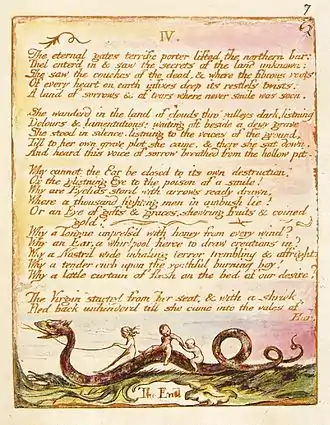 7
IV.
The eternal gates terrific porter lifted the northern bar:
Thel enter'd in & saw the secrets of the land unknown:
She saw the couches of the dead, & where the fibrous roots
Of every heart on earth infixes deep its restless twists:
A land of sorrows & of tears where never smile was seen.
She wanderd in the land of clouds thro' valleys dark, listning
Dolours & lamentations: waiting oft beside a dewy grave
She stood in silence. listning to the voices of the ground,
Till to her own grave plot she came, & there she sat down.
And heard this voice of sorrow breathed from the hollow pit.
Why cannot the Ear be closed to its own destruction?
Or the glistning Eye to the poison of a smile!
Why are Eyelids stord with arrows ready drawn,
Where a thousand fighting men in ambush lie?
Or an Eye of gifts & graces, show'ring fruits & coined
gold!
Why a Tongue impress'd with honey from every wind?
Why an Ear, a whirlpool fierce to draw creations in?
Why a Nostril wide inhaling terror trembling & affright.
Why a tender curb upon the youthful burning boy!
Why a little curtain of flesh on the bed of our desire?
The Virgin started from her seat, & with a shriek
Fled back unhinderd till she came into the vales of
Har
The End